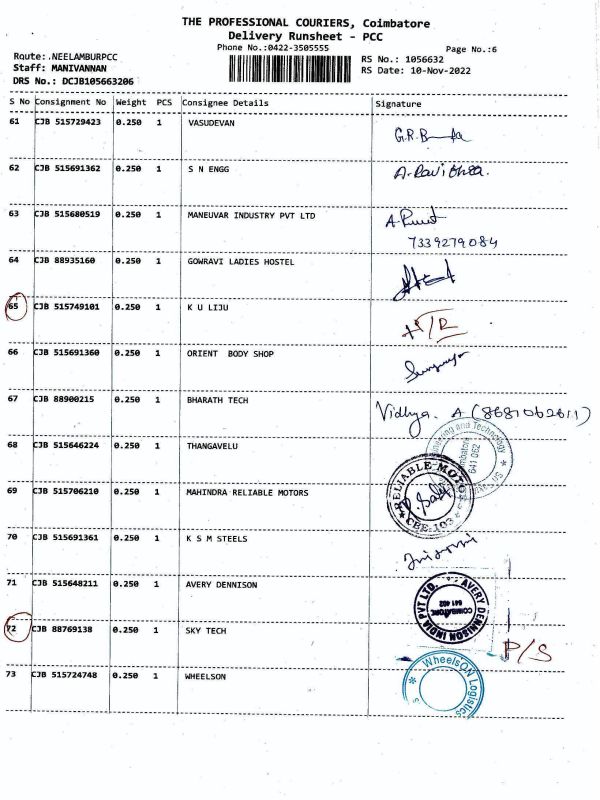 THE PROFESSIONAL COURIERS, Coimbatore
Delivery Runsheet - PCC
Phone No.:0422-3505555
Page No.:6
Route:.NEELAMBURPCC
Staff: MANIVANNAN
DRS No.: DCJB105663206
RS No.: 1056632
RS Date: 10-Nov-2022
S No Consignment No Weight PCS Consignee Details Signature
61 CJB 515729423 0.250 1 VASUDEVAN
62 CJB 515691362 0.250 1 S N ENGG
63 CJB 515680519 0.250 1 MANEUVAR INDUSTRY PVT LTD
7339279084
64 CJB 88935160 0.250 1 GOWRAVI LADIES HOSTEL
65 CJB 515749101 0.250 1 K U LIJU
66 CJB 515691360 0.250 1 ORIENT BODY SHOP
67 CJB 88900215 0.250 1 BHARATH TECH Vidhya. A (8681062611)
68 CJB 515646224 0.250 1 THANGAVELU
and Technology
Coimbatore
641 062
69 CJB 515706210 0.250 1 MAHINDRA RELIABLE MOTORS
RELIABLE MOTORS
CBE-103
70 CJB 515691361 0.250 1 K S M STEELS
71 CJB 515648211 0.250 1 AVERY DENNISON
AVERY DENNISON INDIA PVT LTD.
COIMBATORE
641 402
72 CJB 88769138 0.250 1 SKY TECH P/S
73 CJB 515724748 0.250 1 WHEELSON
WheelsON Logistics